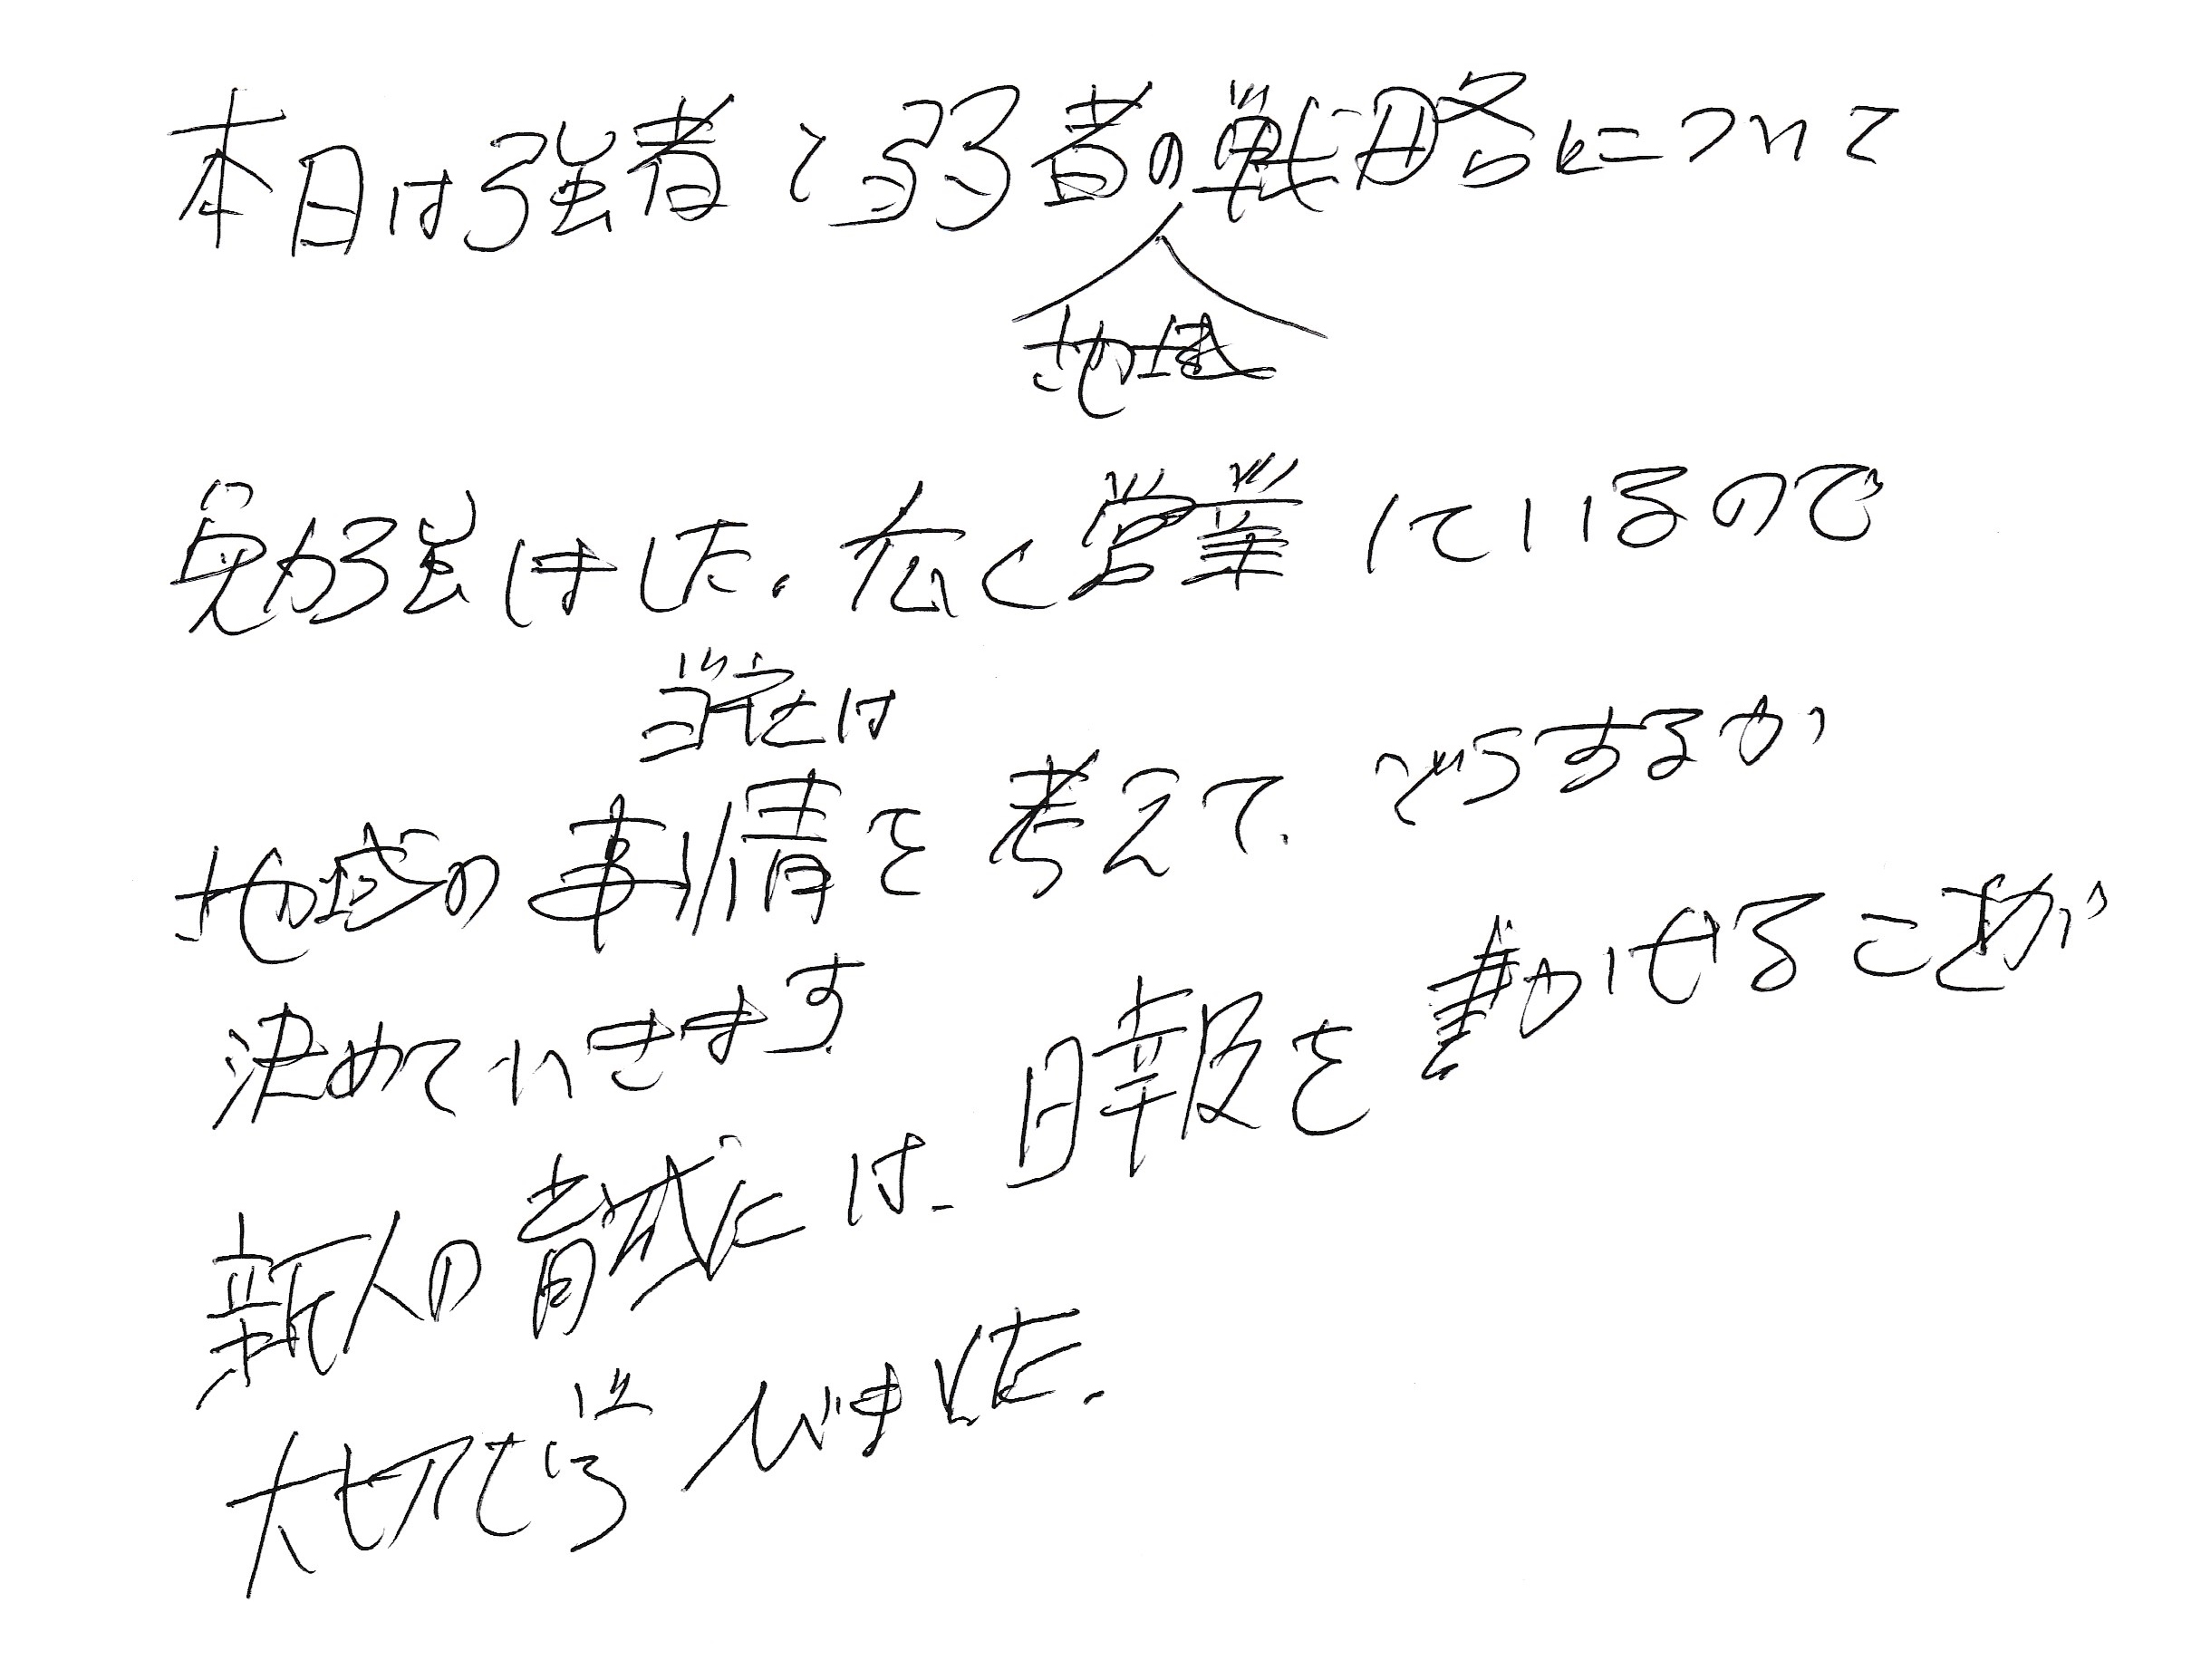 本日は強者と弱者の戦略について
地域
勉強しました。広く営業しているので
当社は
地域の事情を考えて、どうするか
決めていきます。
新人の育成には、日報を書かせることが
大切で学びました。